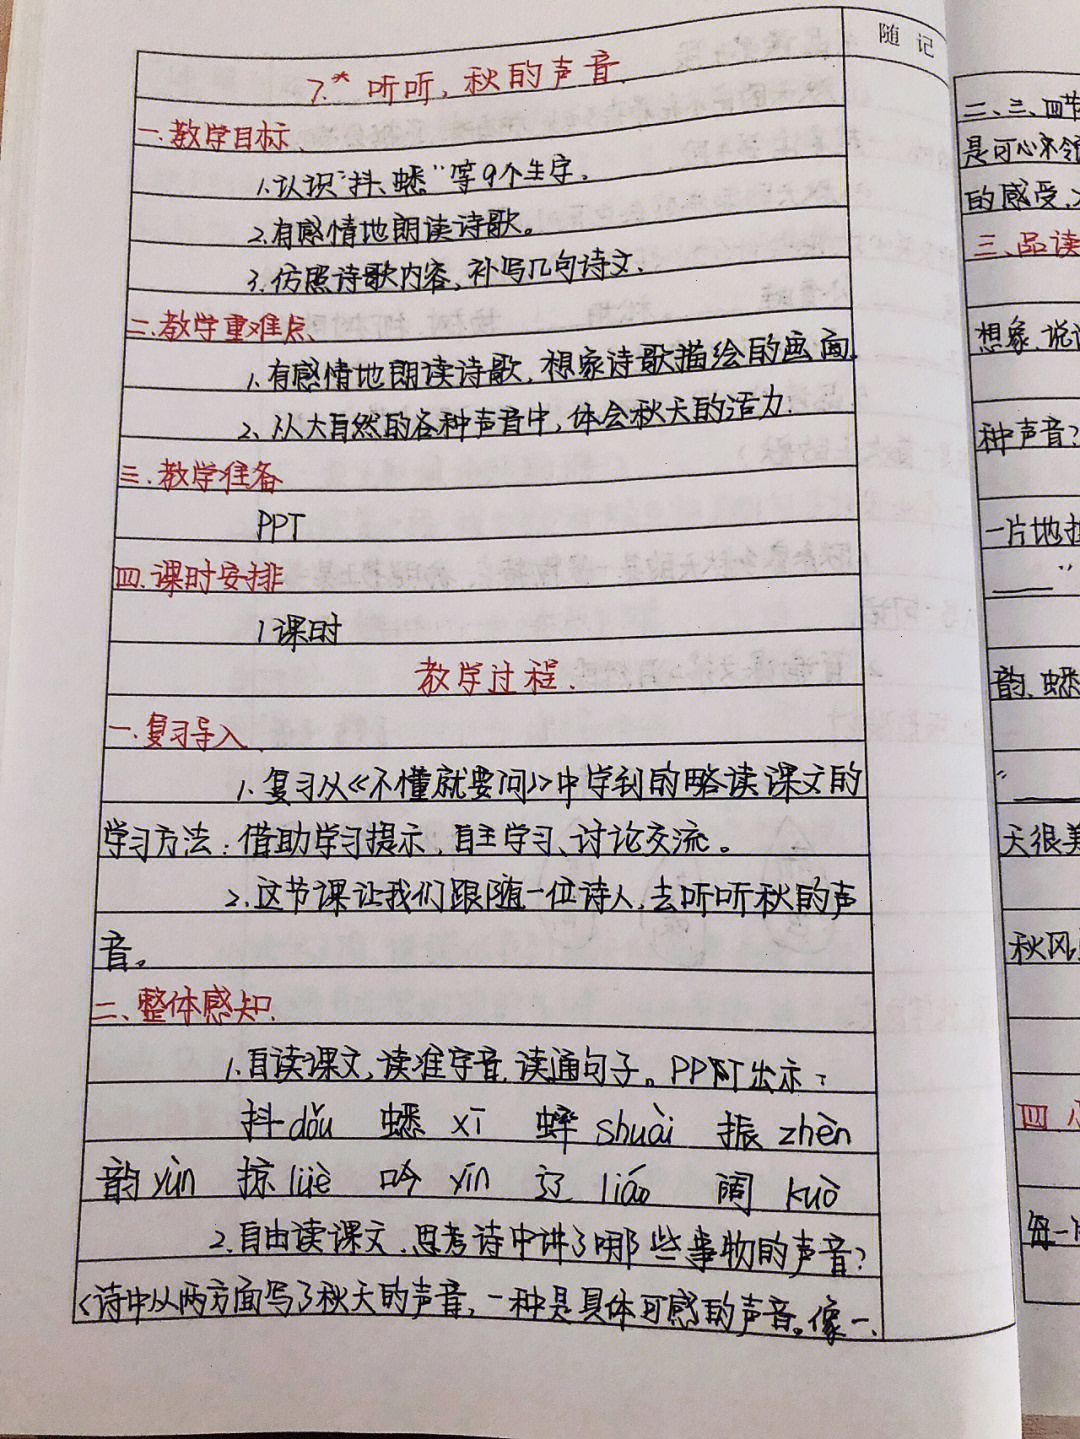 随记
7.* 听听,秋的声音.
一.教学目标、
1.认识"抖、蟋"等9个生字。
2.有感情地朗读诗歌。
3.仿照诗歌内容,补写几句诗文.
二.教学重难点、
1.有感情地朗读诗歌,想象诗歌描绘的画面.
2、从大自然的各种声音中,体会秋天的活力.
三.教学准备
PPT
四.课时安排
1课时
教学过程.
一.复习导入.
1.复习从《不懂就要问》中学到的略读课文的
学习方法:借助学习提示,自主学习、讨论交流。
2.这节课让我们跟随一位诗人,去听听秋的声
音。
二、整体感知.
1.自读课文,读准字音,读通句子。PPT出示:
抖dǒu 蟋 xī 蟀 shuài 振 zhèn
韵yùn 掠lüè 吟 yín 辽 liáo 阔 kuò
2.自由读课文.思考诗中讲了哪些事物的声音?
<诗中从两方面写了秋天的声音,一种是具体可感的声音。像一、
二、三、四节
是可心不领
的感受,
三、品读
想象、说
种声音?
一片地
"
韵、蟋
"
天很美
秋风
四
每一